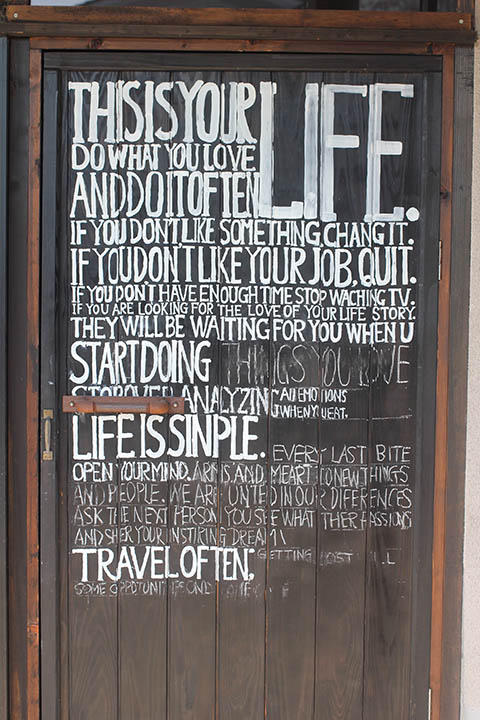 THIS IS YOUR LIFE.
DO WHAT YOU LOVE
AND DO IT OFTEN
IF YOU DON'T LIKE SOMETHING, CHANG IT.
IF YOU DON'T LIKE YOUR JOB, QUIT.
IF YOU DON'T HAVE ENOUGH TIME STOP WACHING TV.
IF YOU ARE LOOKING FOR THE LOVE OF YOUR LIFE STORY.
THEY WILL BE WAITING FOR YOU WHEN U
START DOING THINGS YOU LOVE
STOP OVER ANALYZING ALL EMOTIONS
WHEN YOU EAT.
LIFE IS SINPLE. EVERY LAST BITE
OPEN YOUR MIND, AND HEART TO NEW THINGS
AND PEOPLE. WE ARE UNITED IN OUR DIFFERENCES
ASK THE NEXT PERSON YOU SEE WHAT THER PASSIONS
AND SHER YOUR INSTIRING DREAM
TRAVEL OFTEN; GETTING
SOME